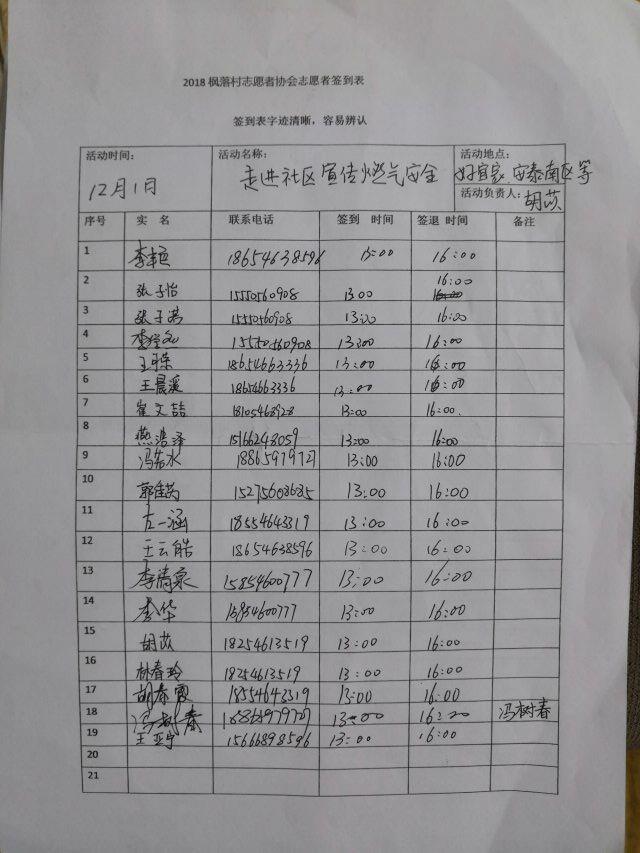 2018枫落村志愿者协会志愿者签到表
签到表字迹清晰，容易辨认
活动时间： 活动名称： 活动地点：
12月1日 走进社区宣传燃气安全 好宜家 安泰南区等
活动负责人：胡苡
序号 实 名 联系电话 签到 时间 签退 时间 备注
1 18654638596 13:00 16:00
2 张子怡 15550560908 13:00 16:00
3 张子涵 15550560908 13:00 16:00
4 15550560908 13:00 16:00
5 18654663336 13:00 16:00
6 王晨溪 18654663336 13:00 16:00
7 崔文喆 18105468928 13:00 16:00.
8 燕浩泽 15166248059 13:00 16:00
9 冯若水 13:00 16:00
10 13:00 16:00
11 古一涵 18554643319 13:00 16:00
12 王云皓 18654638596 13:00 16:00
13 李清泉 15854600777 13:00 16:00
14 李华 15854600777 13:00 16:00
15 胡苡 18254613519 13:00 16:00
16 林春玲 18254613519 13:00 16:00
17 胡春霞 18554643319 13:00 16:00
18 冯树春 13:00 16:00 冯树春
19 王亚宁 15666898596 13:00 16:00
20
21